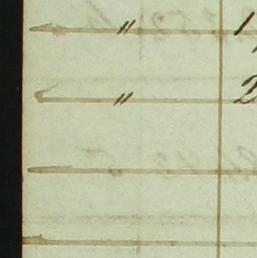 " 1
" 2